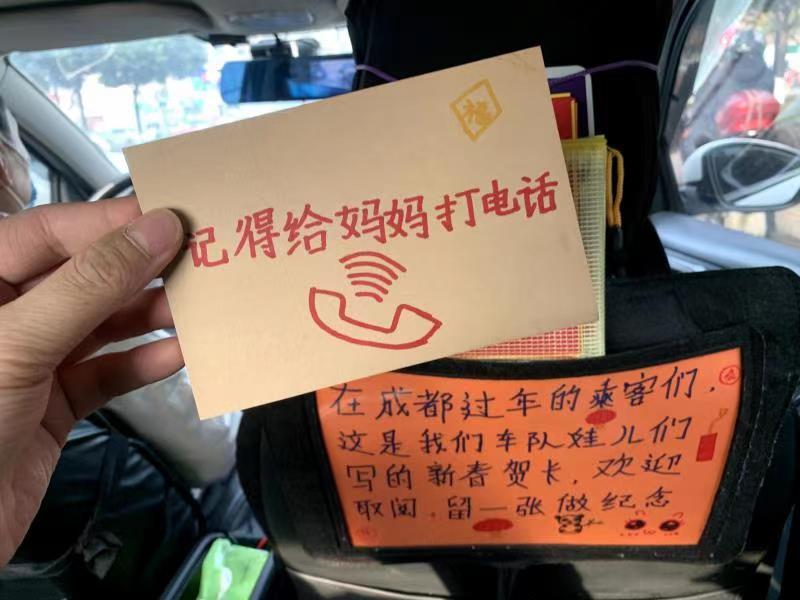 记得给妈妈打电话
在成都过车的乘客们，
这是我们车队娃儿们
写的新春贺卡，欢迎
取阅，留一张做纪念